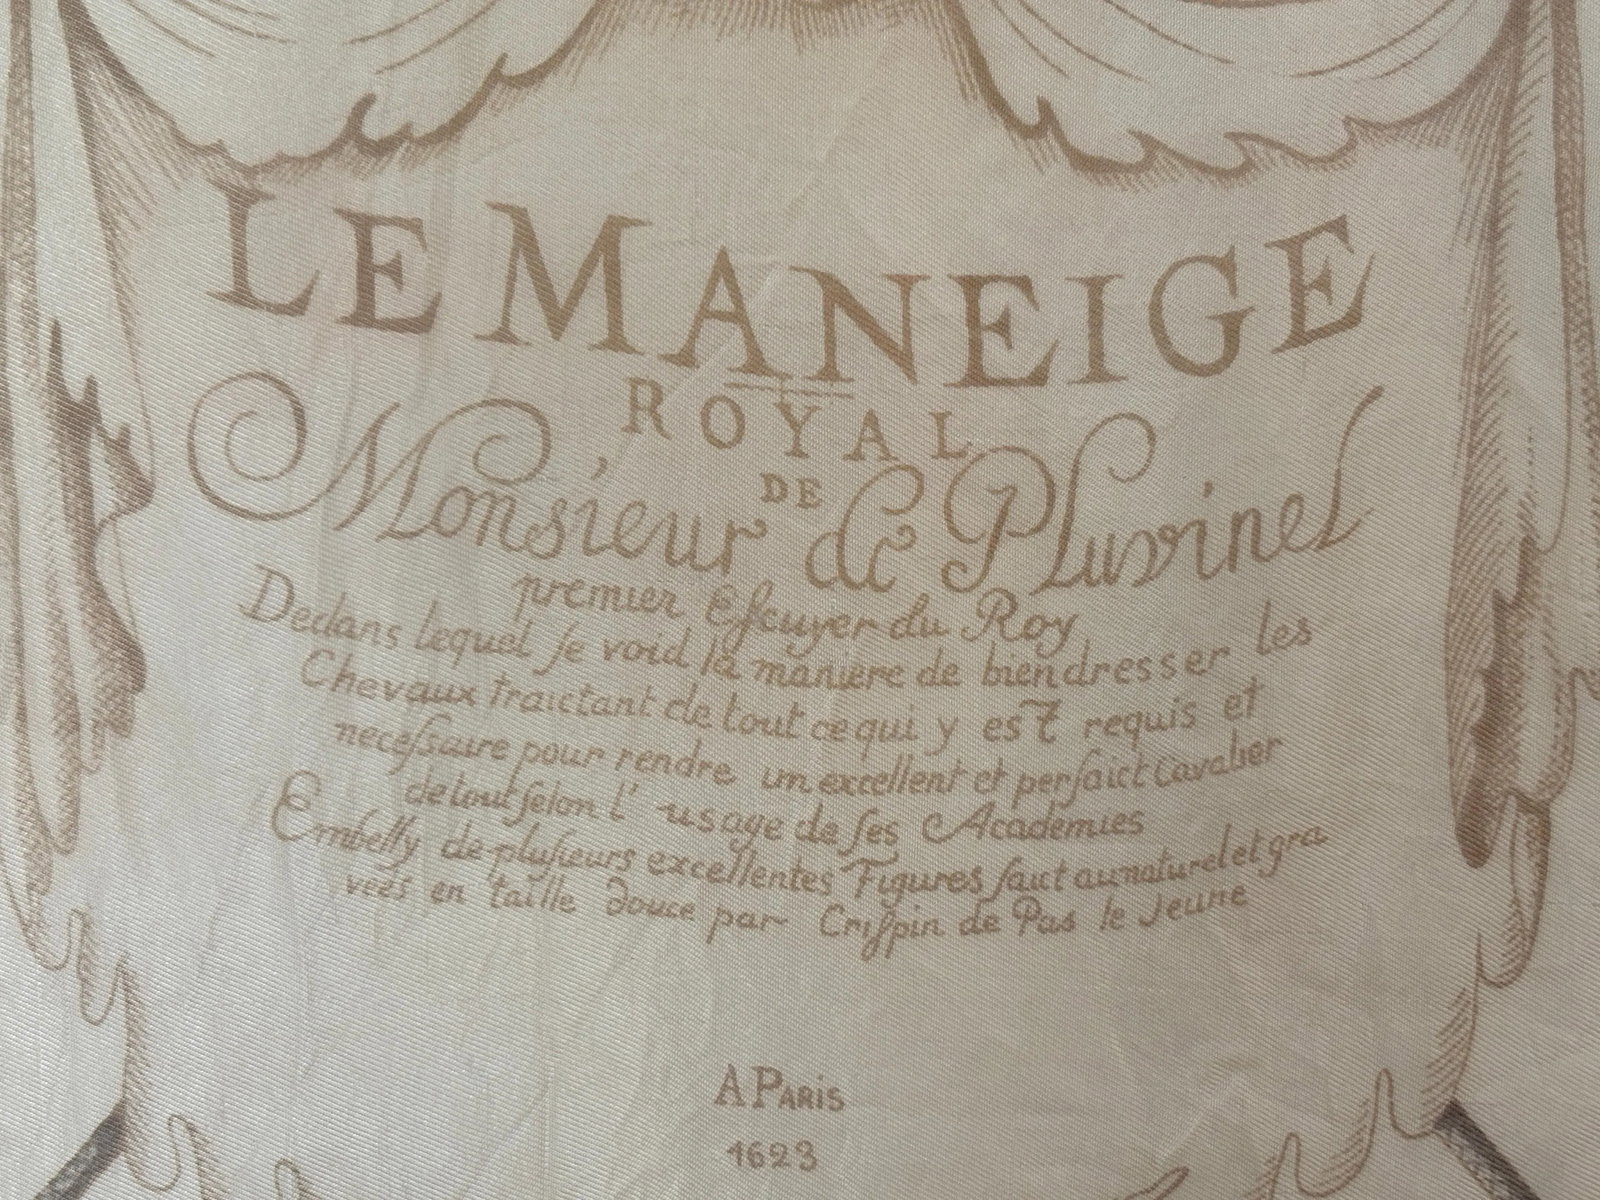 LE MANEIGE
ROYAL
DE
Monsieur de Pluvinel
premier Escuyer du Roy
Dedans lequel je void la maniere de bien dresser les
Chevaux traictant de tout ce qui y est requis et
neceſsaire pour rendre un excellent et perfaict Cavalier
de tout ſelon l'usage de ſes Academies
Embelly de pluſieurs excellentes Figures faict au naturel et gra
veés en taille douce par Criſpin de Pas le Jeune
A PARIS
1623